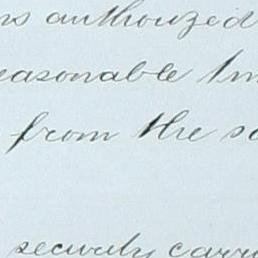 ns authorized
easonable tim
from the sa
securely carri